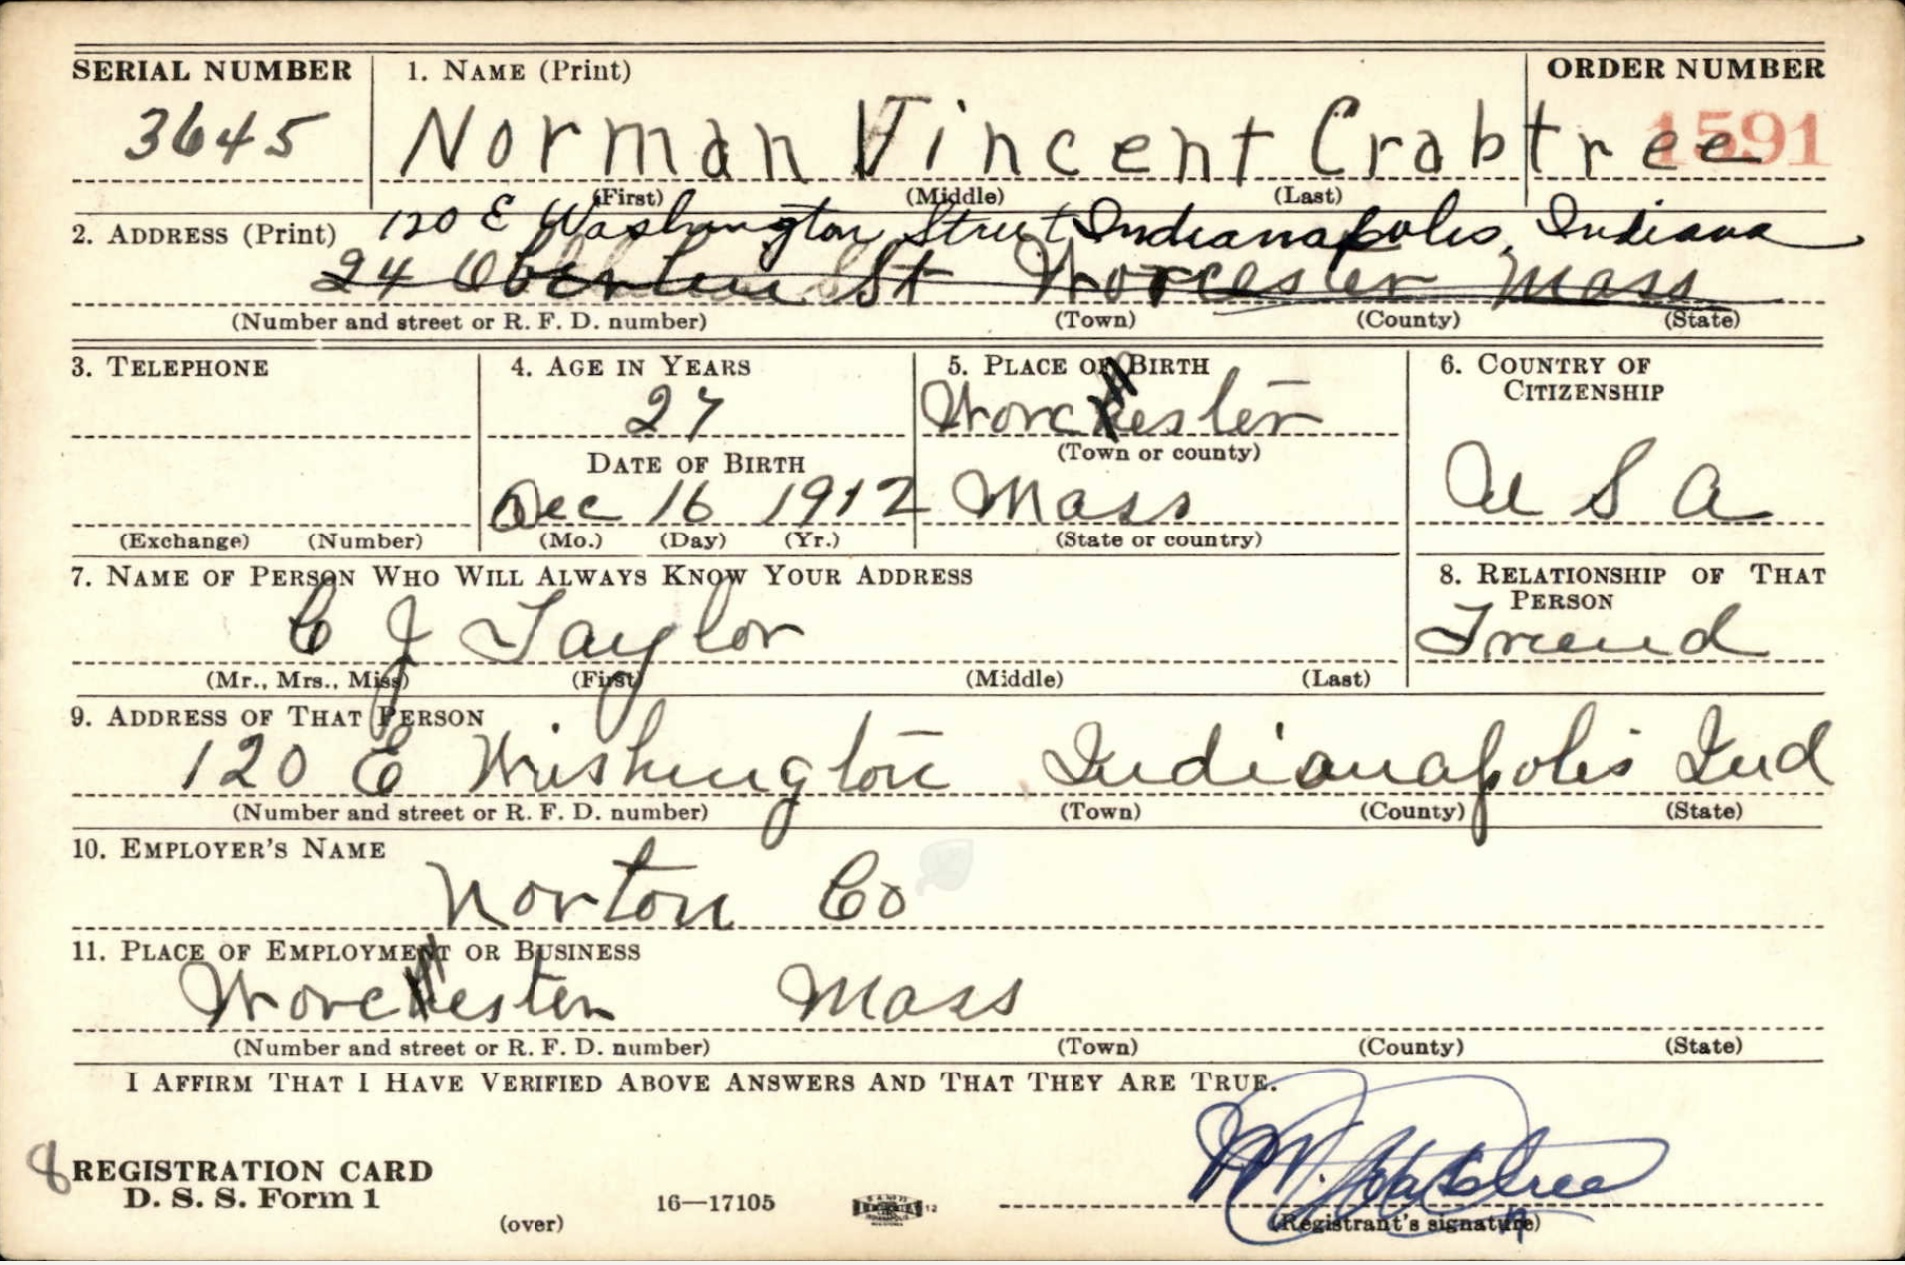 SERIAL NUMBER 1. NAME (Print) ORDER NUMBER
3645 Norman Vincent Crabtree 1591
(First) (Middle) (Last)
120 E Washington Street Indianapolis, Indiana
2. ADDRESS (Print)
24 St Worcester Mass
(Number and street or R. F. D. number) (Town) (County) (State)
3. TELEPHONE 4. AGE IN YEARS 5. PLACE OF BIRTH 6. COUNTRY OF
CITIZENSHIP
27 Worcester
(Town or county)
DATE OF BIRTH
Dec 16 1912 Mass U S A
(Exchange) (Number) (Mo.) (Day) (Yr.) (State or country)
7. NAME OF PERSON WHO WILL ALWAYS KNOW YOUR ADDRESS 8. RELATIONSHIP OF THAT
PERSON
C J Taylor Friend
(Mr., Mrs., Miss) (First) (Middle) (Last)
9. ADDRESS OF THAT PERSON
120 E Washington Indianapolis Ind
(Number and street or R. F. D. number) (Town) (County) (State)
10. EMPLOYER'S NAME
Norton Co
11. PLACE OF EMPLOYMENT OR BUSINESS
Worcester Mass
(Number and street or R. F. D. number) (Town) (County) (State)
I AFFIRM THAT I HAVE VERIFIED ABOVE ANSWERS AND THAT THEY ARE TRUE.
8 REGISTRATION CARD
D. S. S. Form 1 16—17105 12
(over) (Registrant's signature)